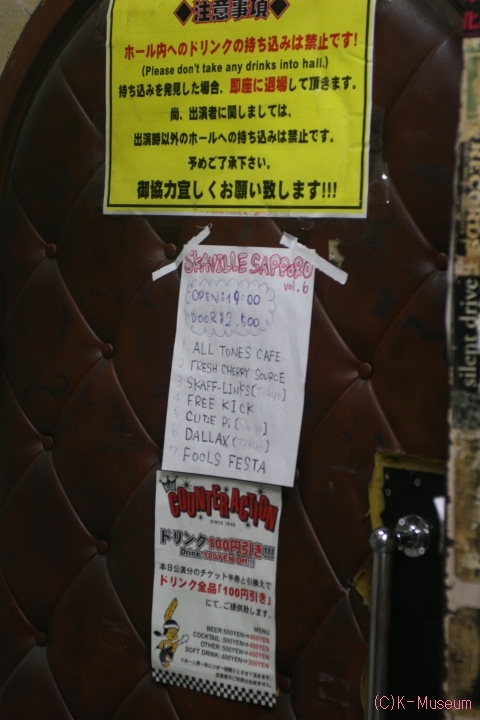 ◆注意事項◆
ホール内へのドリンクの持ち込みは禁止です!
(Please don't take any drinks into hall.)
持ち込みを発見した場合、即座に退場して頂きます。
尚、出演者に関しましては、
出演時以外のホールへの持ち込みは禁止です。
予めご了承下さい。
御協力宜しくお願い致します!!!
SKAVILLE SAPPORO
vol.6
OPEN:19:00
DOOR:¥2.500
1 ALL TONES CAFE
2 FRESH CHERRY SOURCE
3 SKAFF-LINKS[Tokyo]
4 FREE KICK
5 CUTIE Pi
6 DALLAX[Tokyo]
7 FOOLS FESTA
COUNTER ACTION
SINCE
ドリンク100円引き!!!
Drink 100YEN Off!!!
本日公演分のチケット半券と引換えで
ドリンク全品「100円引き」
にて、ご提供致します。
MENU
BEER:500YEN⇒400YEN
COCKTAIL:500YEN⇒400YEN
OTHER:500YEN⇒400YEN
SOFT DRINK:400YEN⇒300YEN
RECORDS
silent drive
(C)K-Museum